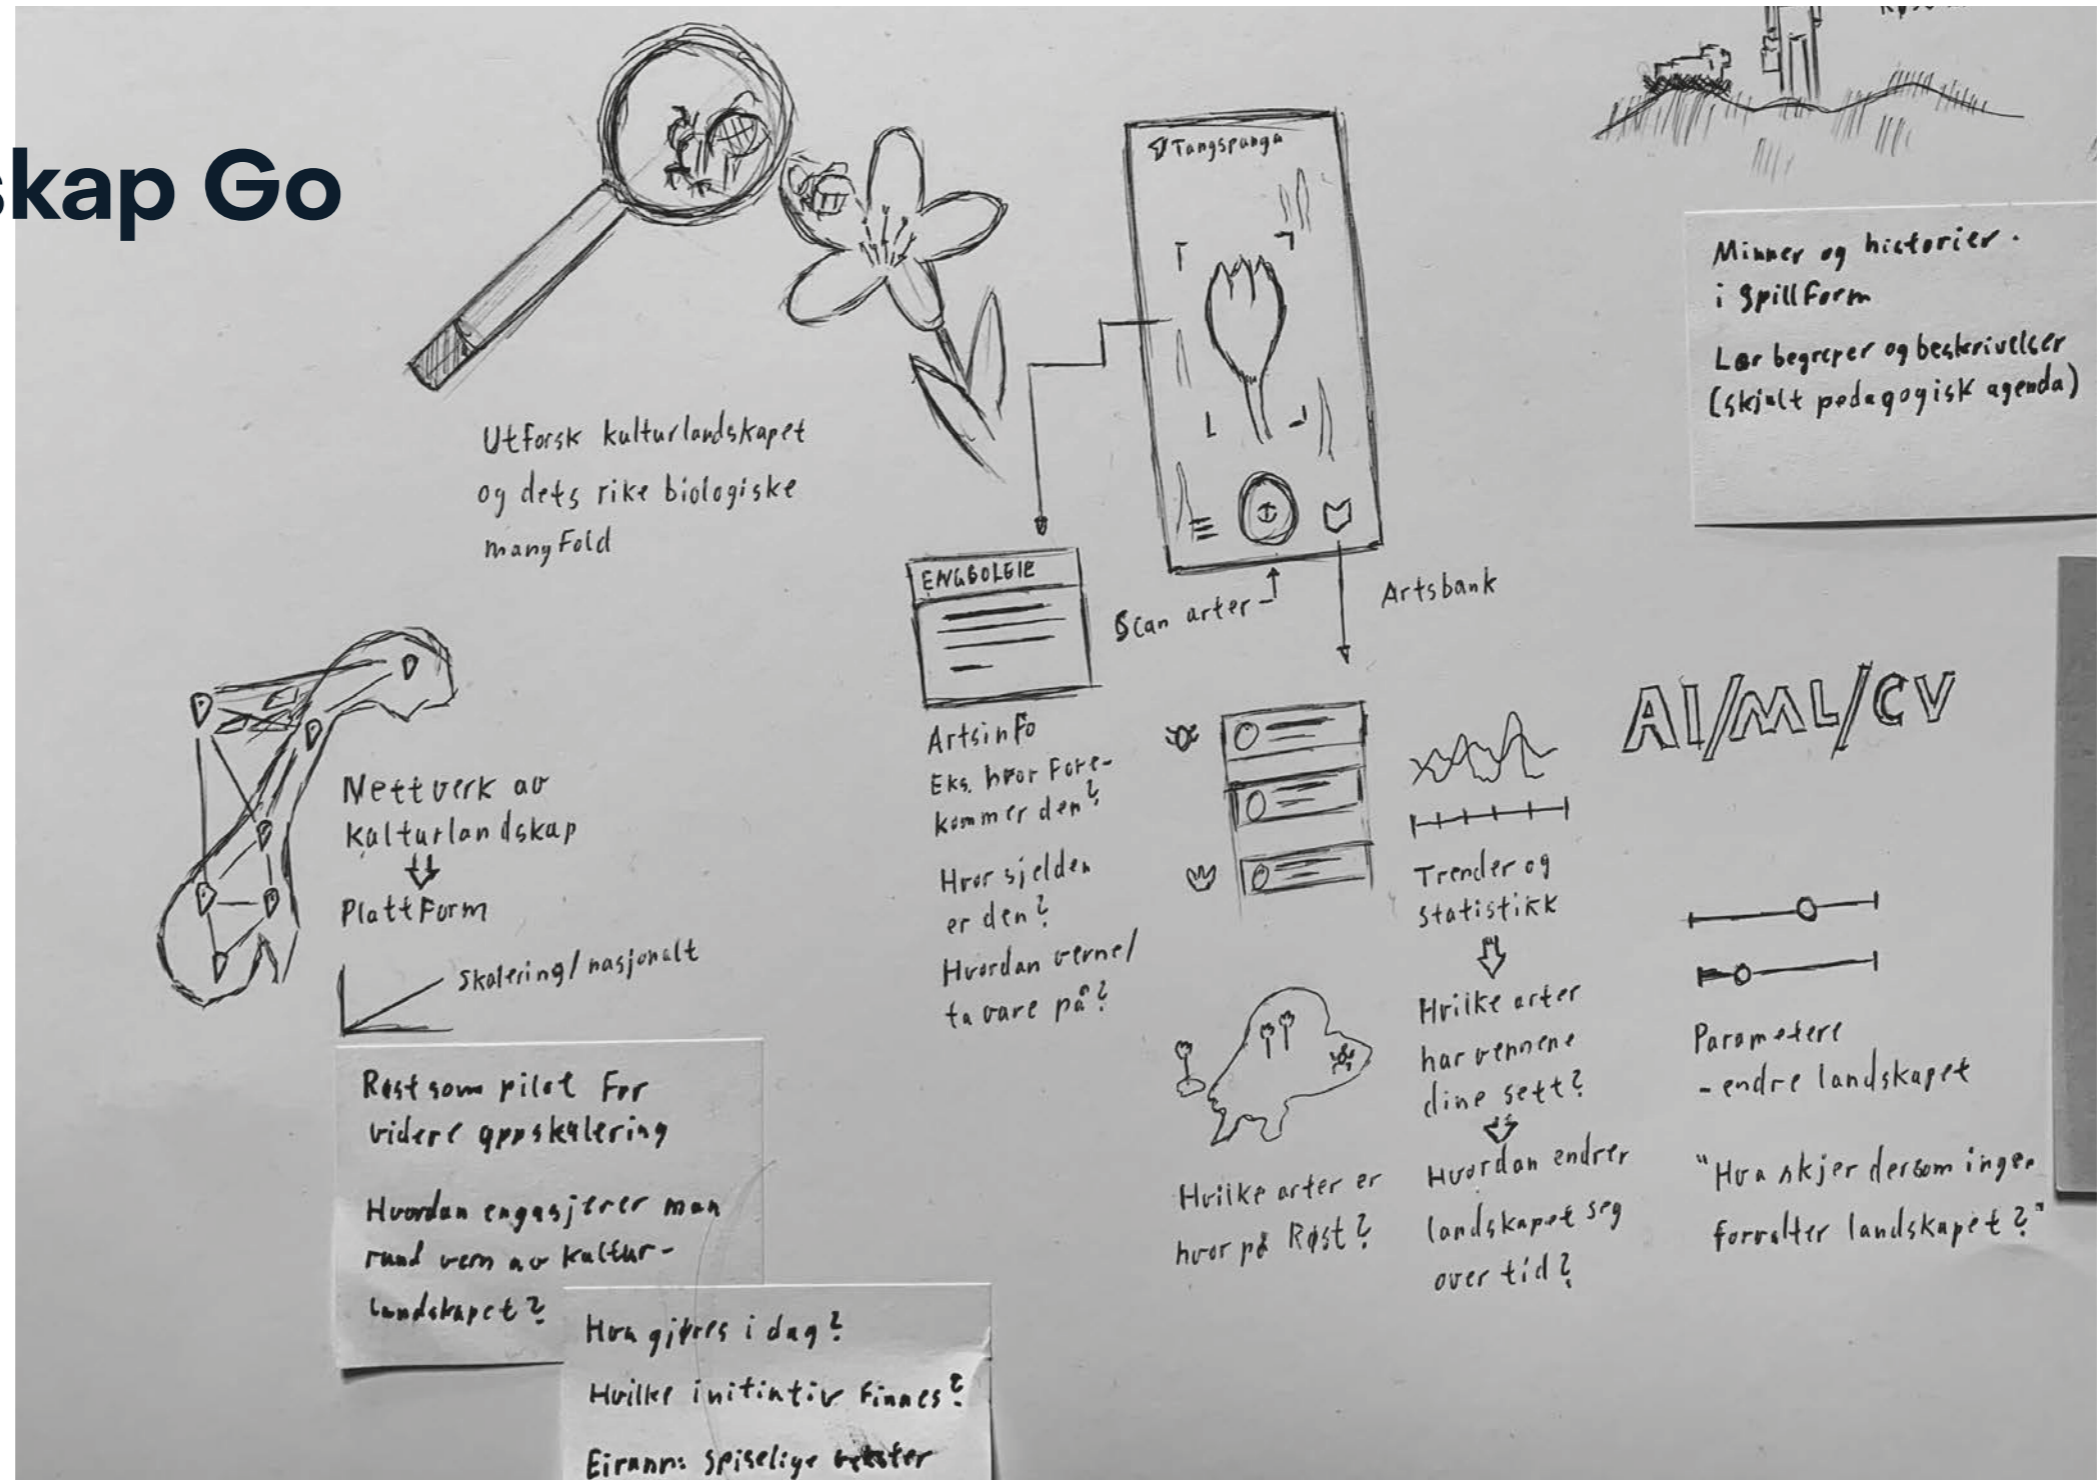 skap Go
Utforsk kulturlandskapet
og dets rike biologiske
mangfold
Tangspanga
Minner og historier.
i spillform
Lær begreper og beskrivelser
(skjult pedagogisk agenda)
ENGBOLEIE
Scan arter
Artsbank
Artsinfo
Eks. hvor fore-
kommer den?
Hvor sjelden
er den?
Hvordan verne/
ta vare på?
Nettverk av
kulturlandskap
Plattform
Skalering/nasjonalt
Røst som pilot for
videre oppskalering
Hvordan engasjerer man
rund vern av kultur-
landskapet?
Hva gjøres i dag?
Hvilke initiativ finnes?
Eirann: spiselige
Hvilke arter er
hvor på Røst?
Trender og
statistikk
Hvilke arter
har vennene
dine sett?
Hvordan endrer
landskapet seg
over tid?
AI/ML/CV
Parametere
- endre landskapet
"Hva skjer dersom ingen
forvalter landskapet?"